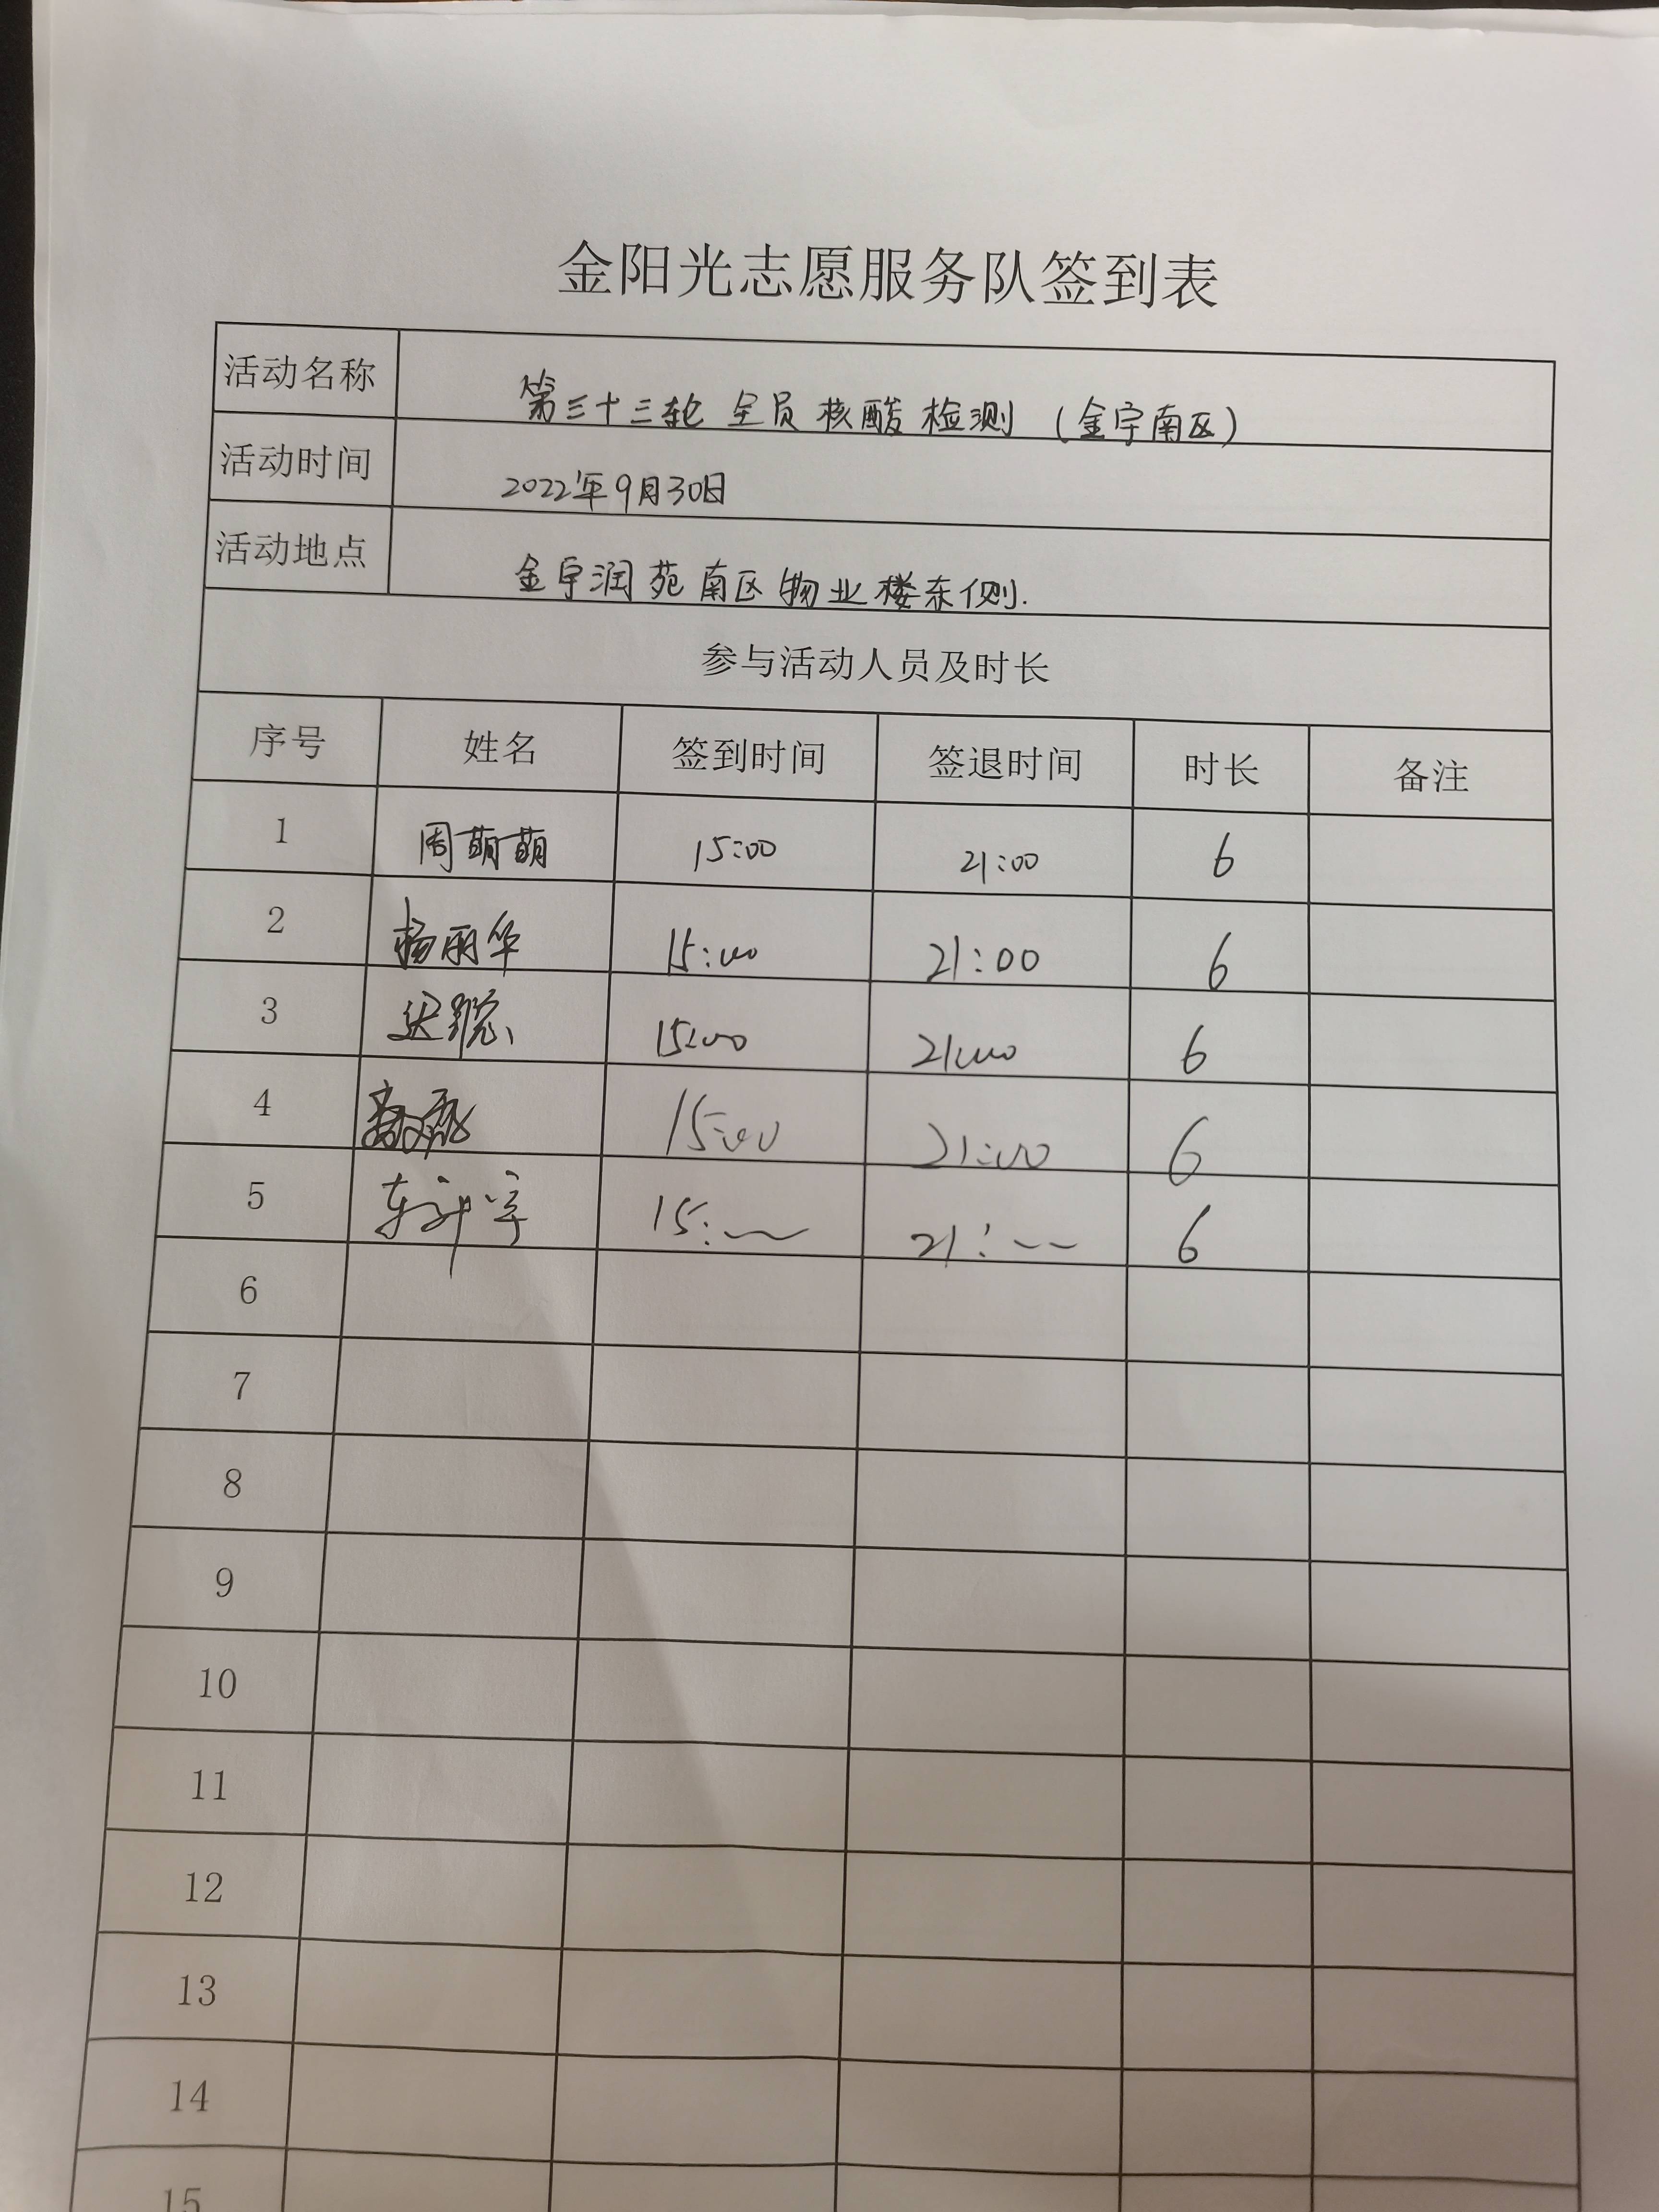 金阳光志愿服务队签到表
活动名称 第三十三轮全员核酸检测（金宇南区）
活动时间 2022年9月30日
活动地点 金宇润苑南区物业楼东侧.
参与活动人员及时长
序号 姓名 签到时间 签退时间 时长 备注
1 周萌萌 15:00 21:00 6
2 杨丽华 15:00 21:00 6
3 15:00 21:00 6
4 15:00 21:00 6
5 15: 21: 6
6
7
8
9
10
11
12
13
14
15